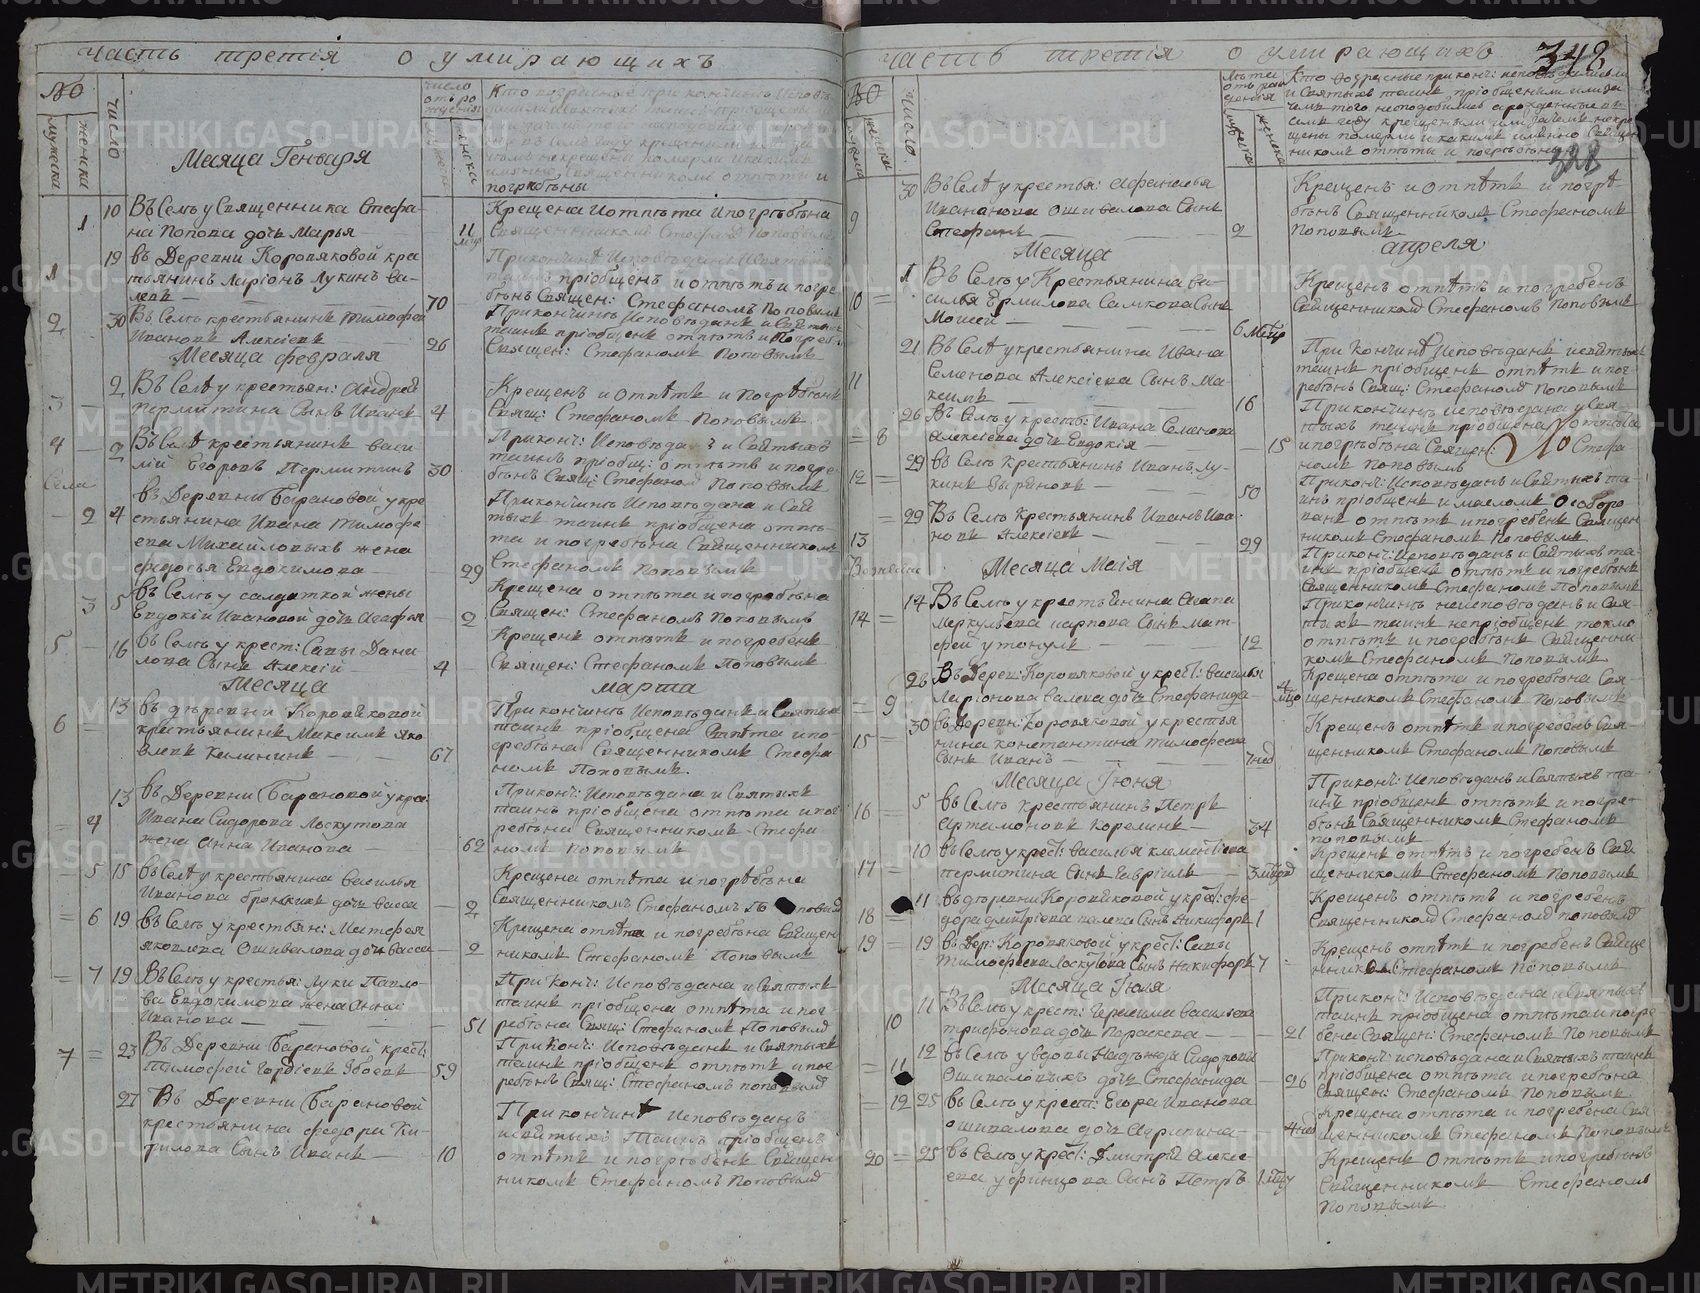 Часть третія о умирающихъ
№
мужеска
женска
число
Месяца Генваря
число
отъ ро
жденія
погребѣны
1
10
Въ Селѣ у Священника Стефа-
на Попова дочь Марья
11
Крещена и отпѣта и погребѣна
Священникомъ Стефано Поповымъ
1
19
въ Деревни Коровяковой кре
стьянинъ Ларіонъ Лукинъ Ва-
левъ
70
пріобщенъ и отпѣтъ и погре
бѣнъ Священ: Стефаномъ Поповымъ
2
30
Въ Селѣ крестьянинъ Тимофей
Ивановъ Алексіевъ
26
При кончинѣ Исповѣданъ и Святыхъ
таинъ пріобщенъ отпѣтъ и погреб:
Священ: Стефаномъ Поповымъ
Месяца февраля
3
2
Въ Селѣ у крестьян: Андрея
Пермитина Сынъ Иванъ
4
Крещенъ и Отпѣтъ и Погребѣнъ
Свящ: Стефаномъ Поповымъ
4
2
Въ Селѣ крестьянинъ Васи-
лій Егоровъ Пермитинъ
30
Приконч: Исповѣда и Святыхъ
таинъ пріобщ: отпѣтъ и погре
бѣнъ Свящ: Стефаном Поповымъ
Села
2
4
въ Деревни Барановой у кре
стьянина Ивана Тимофе
ева Михайловыхъ жена
федосья Евдокимова
29
При кончинѣ Исповѣдана и Свя
тыхъ таинъ пріобщена отпѣ-
та и погребѣна Священникомъ
Стефаномъ Поповымъ
3
5
въ Селѣ у салдаткой жены
Евдокіи Ивановой дочь Агафья
2
Крещена отпѣта и погребѣна
Священ: Стефаномъ Поповымъ
5
16
въ Селѣ у крест: Савы Дани
лова Сынъ Алексій
4
Крещенъ отпѣтъ и погребенъ
Священ: Стефаномъ Поповымъ
Месяца марта
6
13
въ деревни Коровяковой
крестьянинъ Максимъ Яко
влевъ Калининъ
67
При кончинѣ Исповѣданъ и Святыхъ
таинъ пріобщена отпѣта и по-
гребѣна Священникомъ Стефа
номъ Поповымъ.
4
13
въ Деревни Барановой у крес:
Ивана Сидорова Лоскутова
жена Анна Иванова
62
Приконч: Исповѣдана и Святыхъ
таинъ пріобщена отпѣта и пог
ребѣна Священникомъ Стефа
номъ Поповымъ
5
15
въ Селѣ у крестьянина Василья
Иванова дочь Васса
2
Крещена отпѣта и погребѣна
Священникомъ Стефаномъ Поповым
6
19
въ Селѣ у крестьян: Матфея
Яковлева Ошивалова дочь Васса
2
Крещена отпѣта и погребѣна Священ
никомъ Стефаномъ Поповымъ
7
19
Въ Селѣ у крестья: Луки Павло-
ва Евдокимова жена Анна
Иванова
51
При Конч: Исповѣдана и Святыхъ
таинъ пріобщена отпѣта и пог
ребѣна Свящ: Стефаномъ Поповым
7
23
Въ Деревни Барановой крест:
Тимофей Гордіевъ
59
При Конч: Исповѣданъ и Святыхъ
таинъ пріобщенъ отпѣтъ и пог
ребѣнъ Свящ: Стефаномъ Поповым
27
Въ Деревни Барановой
крестьянина федора Ки-
рилова Сынъ Иванъ
10
При кончинѣ Исповѣданъ
и святыхъ Таинъ пріобщенъ
отпѣтъ и погребѣнъ Священ
никомъ Стефаномъ Поповым
Часть третія о умирающихъ
348
328
№
число
женска
30
Въ Селѣ у крестья: Афанасья
Иванова Ошивалова Сынъ
Стефанъ
9
2
Крещенъ и Отпѣтъ и погре
бѣнъ Священникомъ Стефаномъ
Поповымъ
Месяца апреля
10
1
Въ Селѣ у Крестьянина Ва-
силья Ермилова Самкова Сынъ
Моисей
6
Крещенъ отпѣтъ и погребенъ
Священником Стефаномъ Поповымъ
11
21
Въ Селѣ у крестьянина Ивана
Семенова Алексіева Сынъ Ма-
ксимъ
16
При Кончинѣ Исповѣданъ и святыхъ
таинъ пріобщенъ отпѣтъ и пог-
ребѣнъ Свящ: Стефаном Поповымъ
8
26
Въ Селѣ у крестья: Ивана Семенова
Алексіева дочь Евдокія
15
При кончинѣ исповѣдана и Свя-
тыхъ таинъ пріобщена отпѣта
и погребѣна Священ: Стефа
номъ Поповымъ
12
29
въ Селѣ крестьянинъ Иванъ Лу-
кинъ Зыряновъ
50
Приконч: Исповѣданъ и Святыхъ та-
инъ пріобщенъ и маслом Особоро
ванъ отпѣтъ и погребенъ Священ
никомъ Стефаномъ Поповымъ
13
29
Въ Селѣ крестьянинъ Иванъ Ива
новъ Алексіевъ
29
Приконч: Исповѣданъ и Святыхъ та-
инъ пріобщенъ отпѣтъ и погребѣнъ
Священникомъ Стефаномъ Поповымъ
Месяца Маія
14
14
Въ Селѣ у крестьянина Агапа
Меркульева Карпова Сынъ Мат-
фей утонулъ
12
При кончинѣ неисповѣданъ и Свя-
тыхъ таинъ непріобщенъ токмо
отпѣтъ и погребѣнъ Священни-
комъ Стефаномъ Поповымъ
9
26
Въ Дерев: Коровяковой у крест: Василья
Ларіонова Валева дочь Стефанида
4
Крещена отпѣта и погребѣна Свя-
щенникомъ Стефаномъ Поповымъ
15
30
въ Деревн: Коровяковой у крестья
нина Константина Тимофеева
Сынъ Иванъ
7 нед
Крещенъ отпѣтъ и погребенъ Свя-
щенникомъ Стефаномъ Поповымъ
Месяца Іюня
16
5
въ Селѣ крестьянинъ Петръ
Артамоновъ Корелинъ
34
Приконч: Исповѣданъ и Святыхъ та-
инъ пріобщенъ отпѣтъ и погре-
бѣнъ Священникомъ Стефаномъ
Поповымъ
17
10
въ Селѣ у крест: Василья Клементіева
пермитина Сынъ Гавріилъ
3
Крещенъ отпѣтъ и погребенъ Свя
щенникомъ Стефаномъ Поповымъ
18
11
въ деревни Коровяковой у крест: фе-
дора дмитріева Валева Сынъ Никифоръ
1
Крещенъ отпѣтъ и погребенъ
Священником Стефаном Поповым
19
19
въ Дер: Коровяковой у крест: Савы
Тимофеева Лоскутова Сынъ Никифоръ
7
Крещенъ отпѣтъ и погребенъ Священ
никомъ Стефаномъ Поповымъ
Месяца Іюля
10
11
Въ Селѣ у крест: Герасима Васильева
трифонова дочь Параскева
21
Приконч: Исповѣдана и Святыхъ
таинъ пріобщена отпѣта и погре
бена Священ: Стефаномъ Поповымъ
11
12
въ Селѣ у вдовы Надѣжды Сидоровой
Ошиваловыхъ дочь Стефанида
26
Приконч: исповѣдана и Святыхъ таинъ
пріобщена отпѣта и погребѣна
Священ: Стефаномъ Поповымъ
12
25
въ Селѣ у крест: Егора Иванова
Ошивалова дочь Агрипина
4 нед
Крещена отпѣта и погребена Свя
щенникомъ Стефаномъ Поповымъ
20
25
въ Селѣ у крест: Дмитрія Алексі-
ева Уфинцова Сынъ Петръ
1
Крещенъ Отпѣтъ и погребѣнъ
Священникомъ Стефаномъ
Поповымъ
METRIKI.GASO-URAL.RU